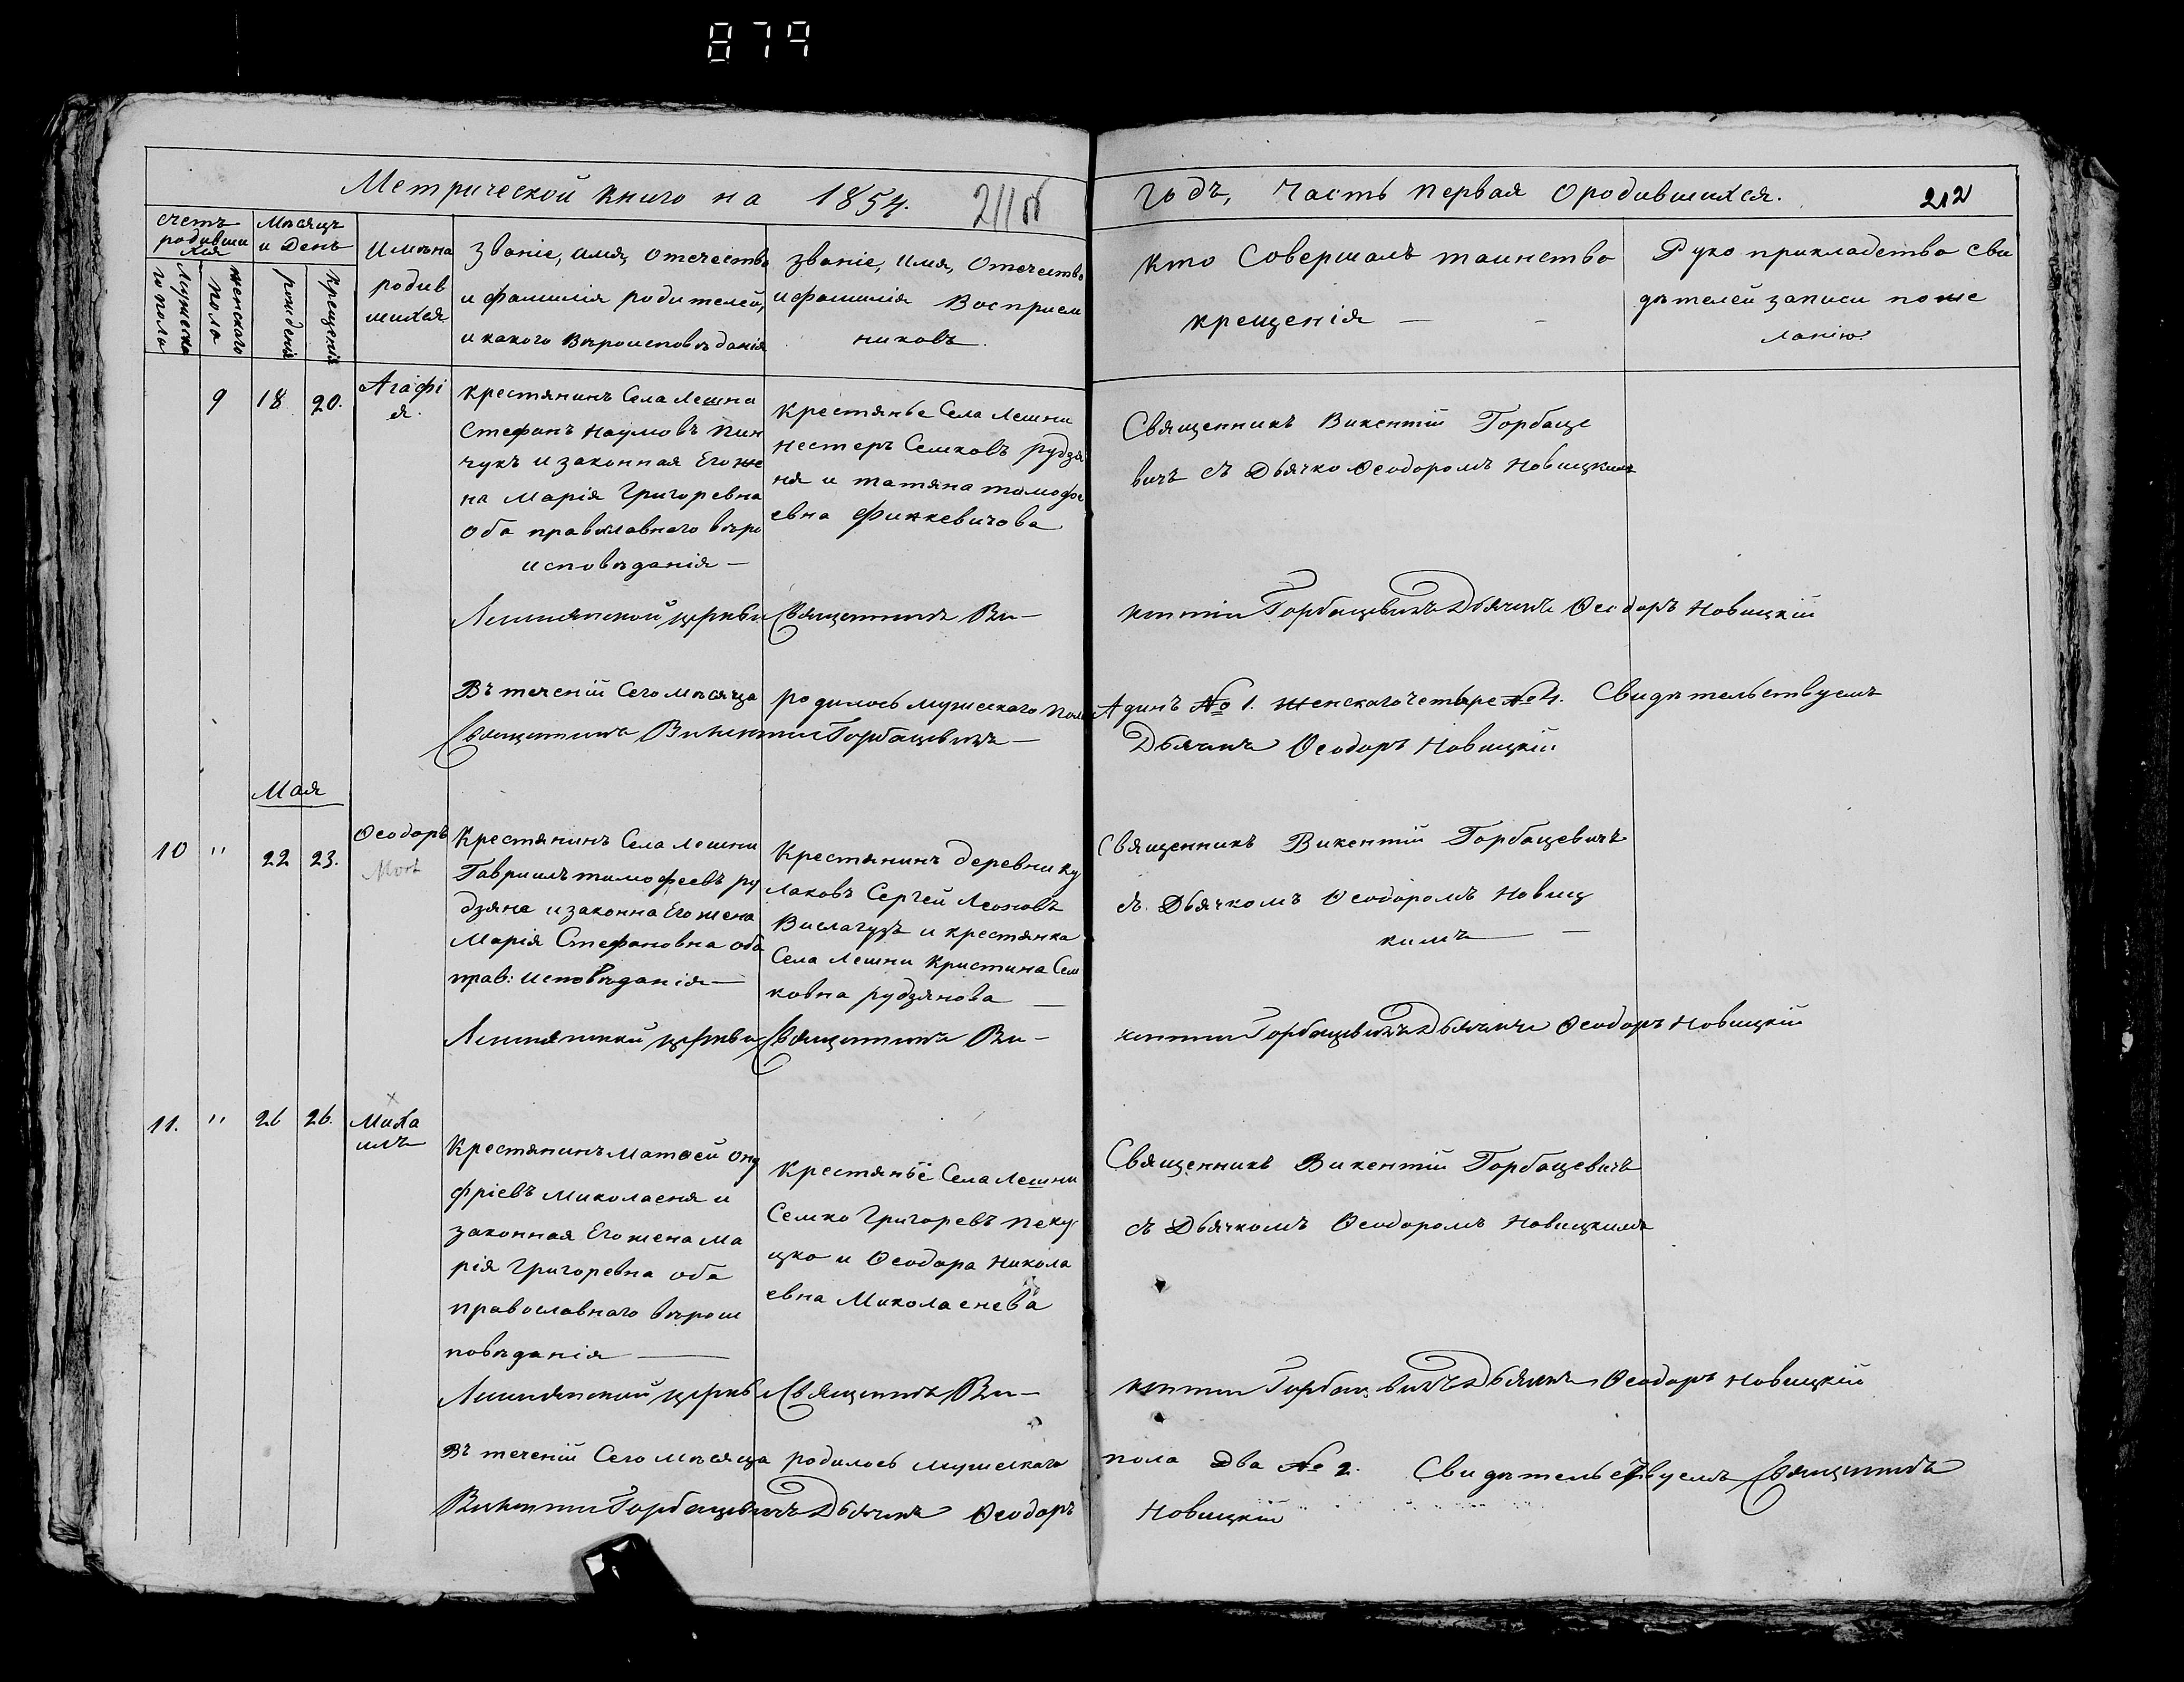 879
Метрической книго на 1854.
211 об
годъ, часть первая о родившихся.
212
счетъ родивши хся
Мужеска го пола
женского пола
Мѣсяцъ и День
рожденія
крещенія
Имѣна
родив
шихся
Званіе, имя, отечество
и фамилія родителей,
и какого вѣроисповѣданія
званіе, имя, отечество
и фамилія Восприем
никовъ.
Кто Совершалъ таинство
крещенія —
Руко прикладство сви
дѣтелей записи по же
ланію.
9 18 20.
Агафі
я.
крестянинъ Села Лешни
Стефанъ Наумовъ Пин
чукъ и законная Его же
на Марія Григоревна
оба православного вѣро
исповѣданія —
Крестянье Села Лешни
Нестеръ Семковъ рудзя
ня и татяна тимофе
евна Финкевичова
Священникъ Викентій Горбаце
вичъ съ Дьячко Ѳеодоромъ Новицкимъ
Лешнянской церкви Священникъ Ви-
кентій Горбацевичъ Дьячекъ Ѳеодоръ Новицкій
Въ теченій Сего мѣсяца родилось мужескаго пола
Адинъ № 1. Женскаго четыре № 4. Свидѣтельствуемъ
Священникъ Викентій Горбацевичъ —
Дьячекъ Ѳеодоръ Новицкій
Мая
10 " 22 23.
Ѳеодоръ
Mort
Крестянинъ Села Лешни
Гавриилъ тимофеевъ ру
дзяне и законна Его жена
Марія Стефановна оба
прав: исповѣданія —
Крестянинъ деревни Ку
лаковъ Сергей Леоновъ
Вислагузъ и крестянка
Села Лешни Кристина Сем
ковна рудзянова —
Священникъ Викентій Горбацевичъ
съ Дьячкомъ Ѳеодоромъ Новиц
кимъ — —
Лешнянской церкви Священникъ Ви-
кентій Горбацевичъ Дьячекъ Ѳеодоръ Новицкій
11. " 26 26.
Миха
илъ
Крестянинъ Матѳей Ону
фріевъ Миколаеня и
законная Его жена Ма
рія Григоревна оба
православнаго вѣроис
повѣданія —
Крестяньё Села Лешни
Семко Григоревъ Пеку
цко и Ѳеодора Никола
евна Миколаенева
Священникъ Викентій Горбацевичъ
съ Дьячкомъ Ѳеодоромъ Новицкимъ
Лешнянской церкви Священникъ Ви-
кентій Горбацевичъ Дьячекъ Ѳеодоръ Новицкій
Въ теченій Сего мѣсяца родилось мужескаго
пола два № 2. Свидѣтельствуемъ Священникъ
Викентій Горбацевичъ Дьячекъ Ѳеодоръ
Новицкій